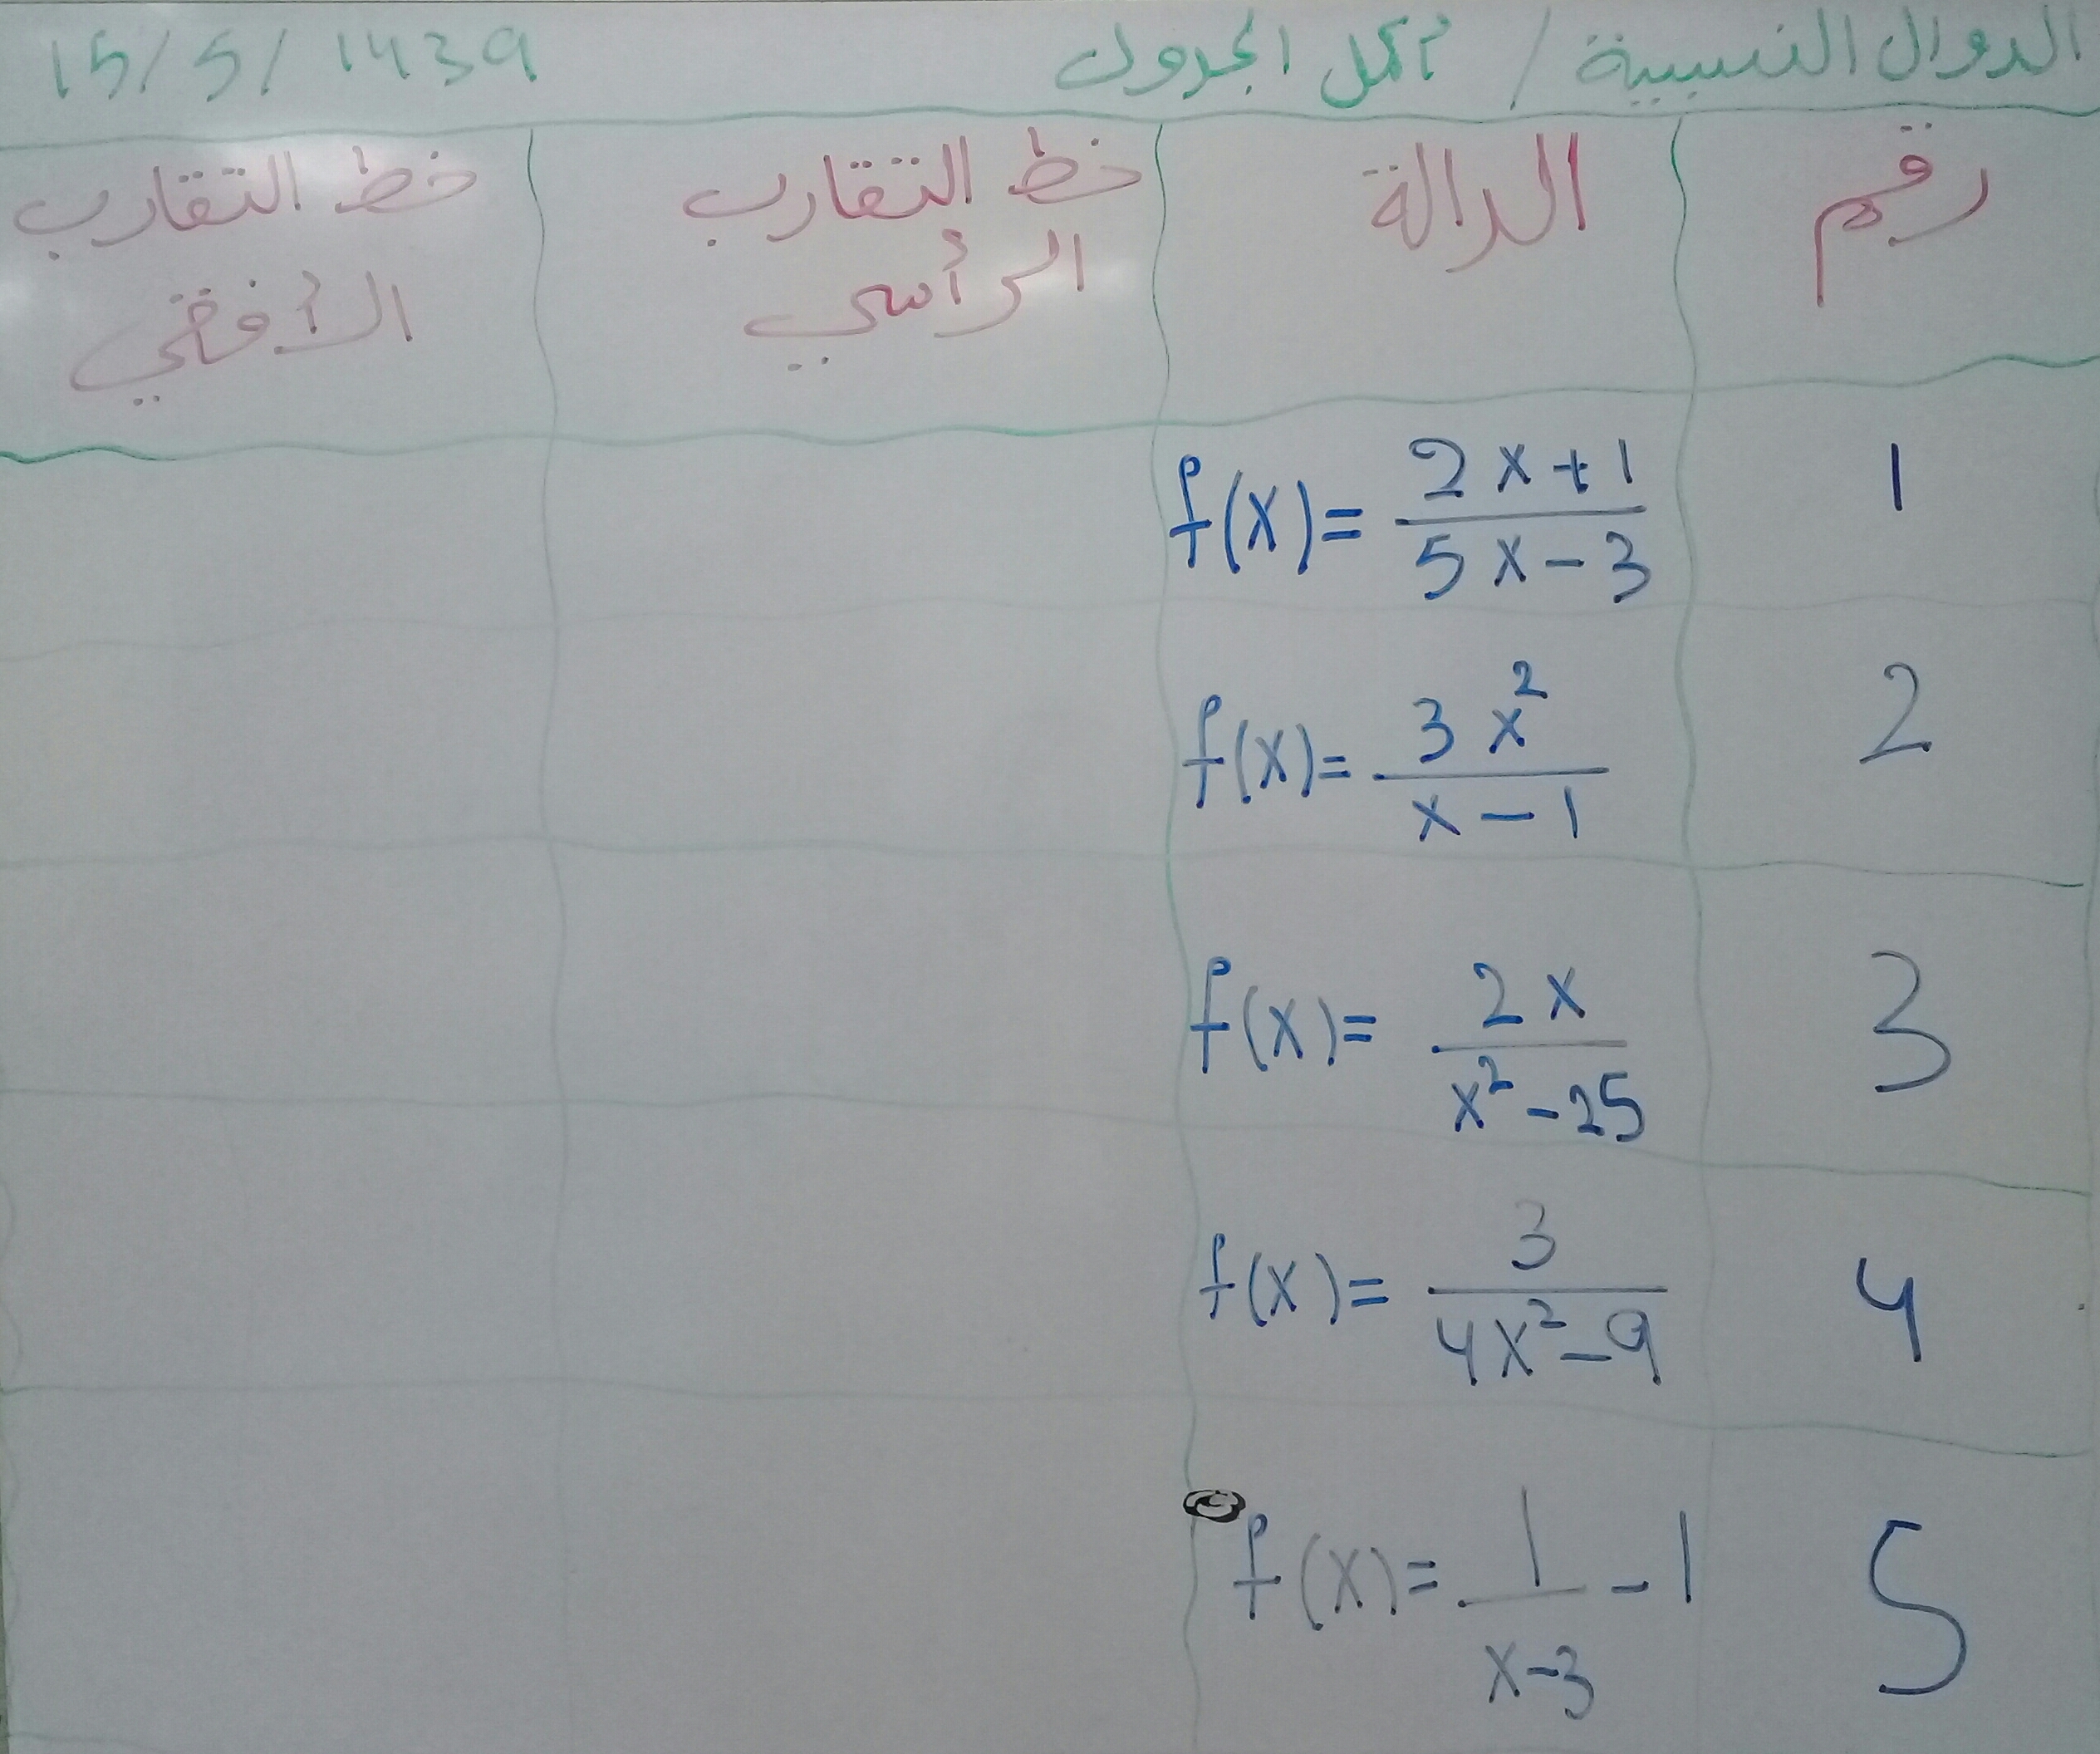 الدوال النسبية / أكمل الجدول 15/5/1439
رقم الدالة خط التقارب الرأسي خط التقارب الأفقي
1 f(x)= (2x+1)/(5x-3)
2 f(x)= (3x²)/(x-1)
3 f(x)= (2x)/(x²-25)
4 f(x)= 3/(4x²-9)
5 f(x)= 1/(x-3) -1